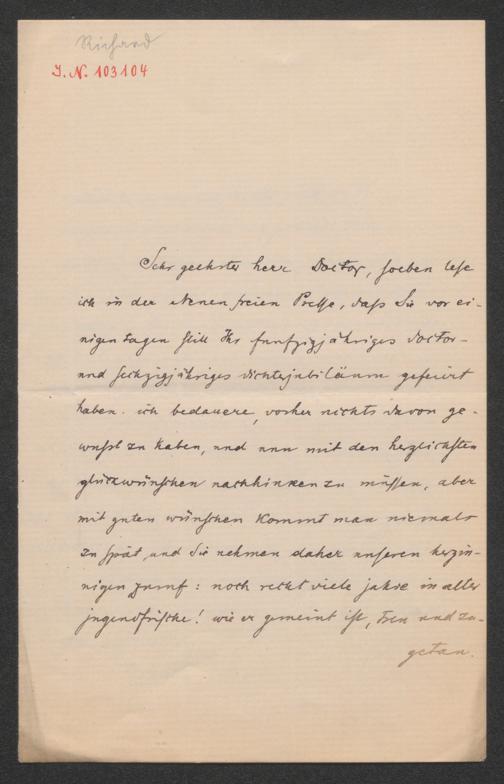 Richard
I.N. 103104
Sehr geehrter herr Doctor, soeben lese
ich in der Neuen freien Presse, daß Sie vor ei-
nigen tagen still Ihr funfzigjähriges doctor-
und sechzigjähriges dichterjubiläum gefeiert
haben. ich bedauere, vorher nichts davon ge-
wusst zu haben, und nun mit den herzlichsten
glückwünschen nachhinken zu müssen, aber
mit guten wünschen kommt man niemals
zu spät, und Sie nehmen daher unseren herzin-
nigen zuruf: noch recht viele jahre in alter
jugendfrische! wie er gemeint ist, treu und zu-
getan.